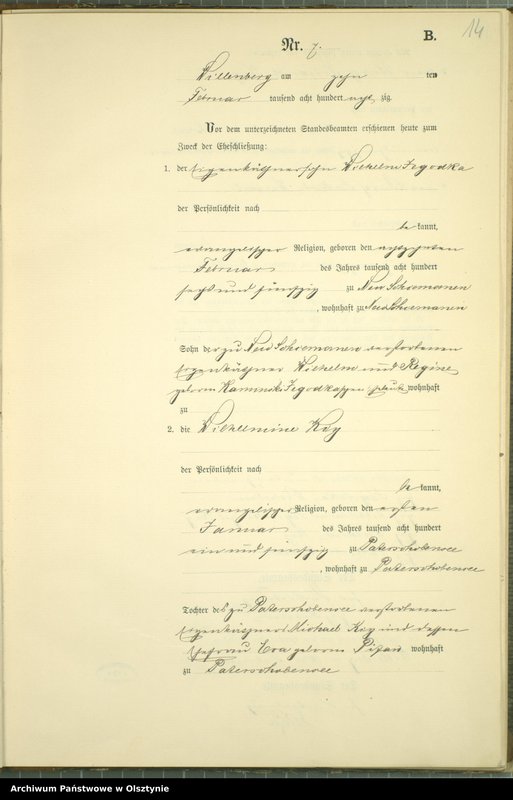 14
B.
Nr. 7.
Willenberg am zehn ten
Februar tausend acht hundert acht zig.
Vor dem unterzeichneten Standesbeamten erschienen heute zum
Zweck der Eheschließung:
1. der Eigenkäthnersohn Wilhelm Jegodka
der Persönlichkeit nach
be kannt,
evangelischer Religion, geboren den achtzehnten
Februar des Jahres tausend acht hundert
sechs und fünfzig zu Neu Schiemanen
, wohnhaft zu Neu Schiemanen
Sohn der zu Neu Schiemanen verstorbenen
Eigenkäthner Wilhelm und Regine
geborn Kaminski Jegodkaschen Eheleute wohnhaft
zu
2. die Wilhelmine Koy
der Persönlichkeit nach
be kannt,
evangelischer Religion, geboren den ersten
Januar des Jahres tausend acht hundert
ein und fünfzig zu Paterschobensee
, wohnhaft zu Paterschobensee
Tochter des zu Paterschobensee verstorbenen
Eigenkäthners Michael Koy und dessen
Ehefrau Eva geborne wohnhaft
zu Paterschobensee
Archiwum Państwowe w Olsztynie